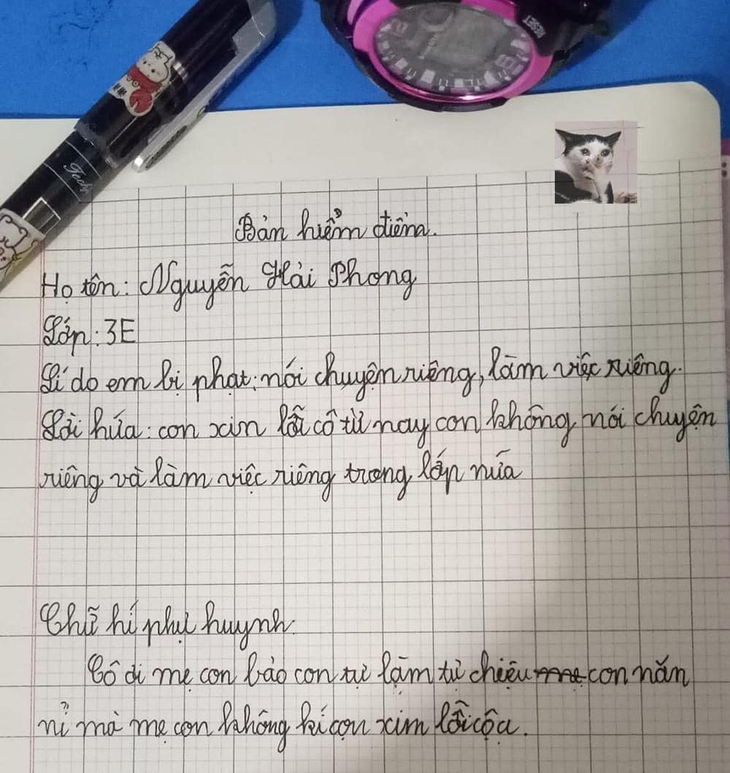 RESET
Tech
Bản hiểm điểm.
Họ tôn: Nguyễn Hải Phong
Lớp: 3E
Lí do em bị phạt: nói chuyện riêng, làm việc riêng.
Lời hứa: con xin lỗi cô từ nay con không nói chuyện
riêng và làm việc riêng trong lớp nữa
Chữ hí phụ huynh:
Cô ơi mẹ con bảo con tự làm tự chiệu con năn
nỉ mà mẹ con không kí cọn xin lỗi cộa.